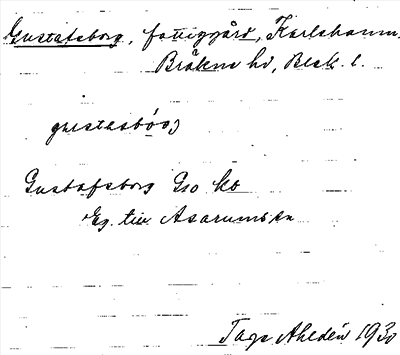 Gustafsborg, fattiggård, Karlshamn,
Bräkne hd, Blek. l.
gustasbórj
Gustafsborg G10 kb
Eg. till Asarums sn
Tage Ahldén 1930